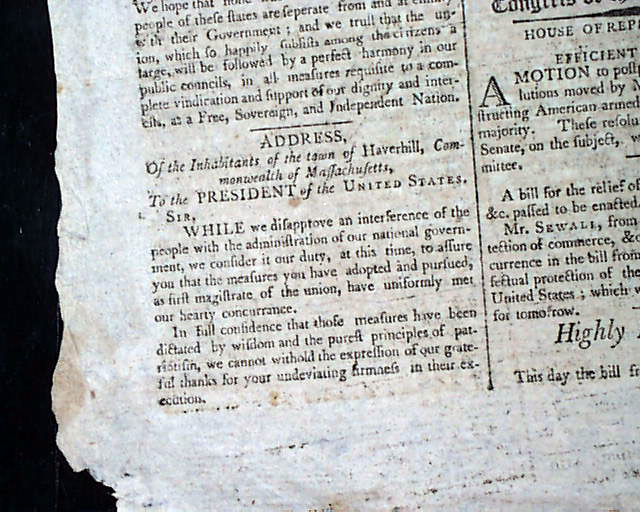 We hope that none
people of these states are seperate from and at enmity
with their Government; and we trust that the un-
ion, which so happily subsists among the citizens a
large, will be followed by a perfect harmony in our
public councils, in all measures requisite to a com-
plete vindication and support of our dignity and inter-
ests, as a Free, Sovereign, and Independent Nation.
ADDRESS,
Of the Inhabitants of the town of Haverhill, Com-
monwealth of Massachusetts,
To the PRESIDENT of the UNITED STATES.
SIR,
WHILE we disapprove an interference of the
people with the administration of our national govern-
ment, we consider it our duty, at this time, to assure
you that the measures you have adopted and pursued,
as first magistrate of the union, have uniformly met
our hearty concurrance.
In full confidence that those measures have been
dictated by wisdom and the purest principles of pat-
riotism, we cannot withold the expression of our grate-
ful thanks for your undeviating firmness in their ex-
ecution.
Congress
HOUSE OF REP
EFFICIENT
A MOTION to postp
lutions moved by
structing American armed
majority. These resolu
Senate, on the subject,
mittee.
A bill for the relief of
&c. passed to be enacted.
Mr. SEWALL, from
tection of commerce, &c
currence in the bill from
fectual protection of the
United States; which w
for tomorrow.
Highly
This day the bill fr